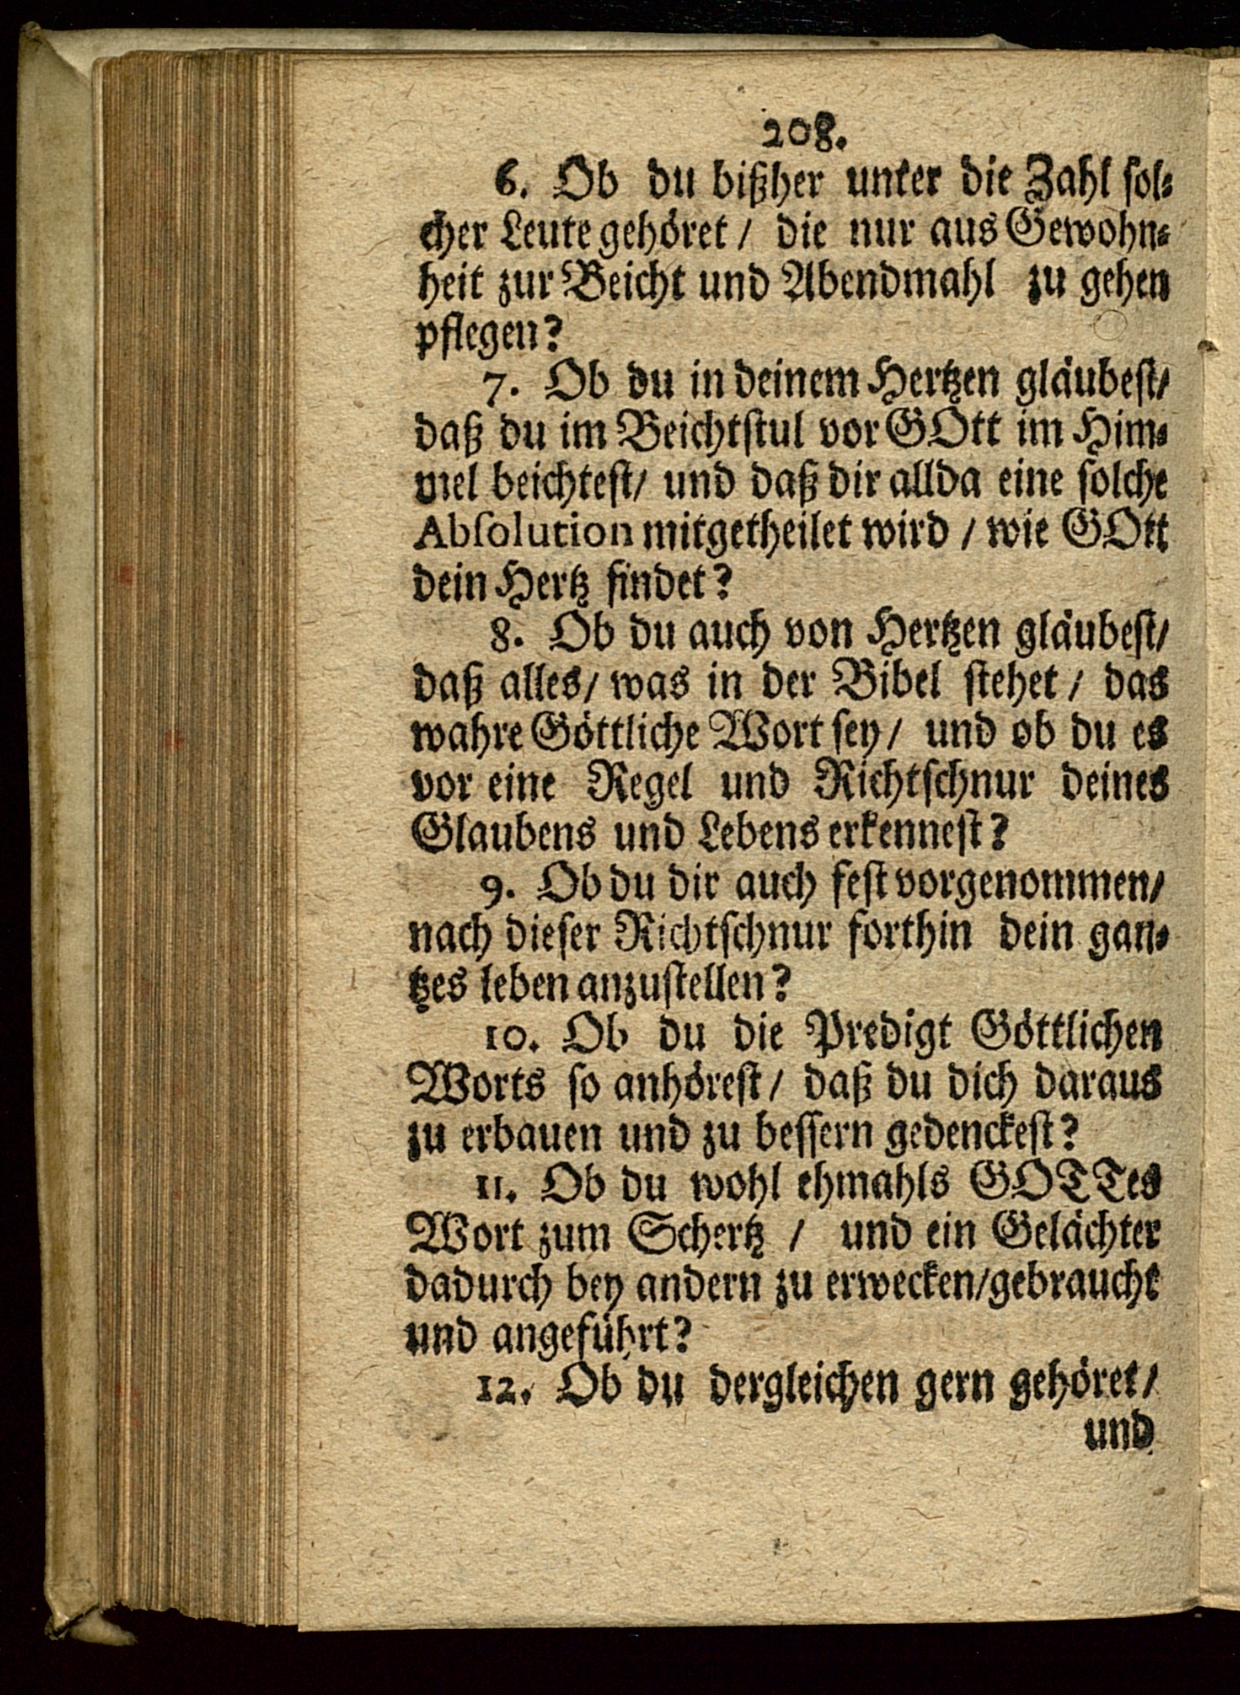 208.
6. Ob du bißher unter die Zahl sol-
cher Leute gehöret / die nur aus Gewohn-
heit zur Beicht und Abendmahl zu gehen
pflegen?
7. Ob du in deinem Hertzen gläubest/
daß du im Beichtstul vor GOtt im Him-
mel beichtest/ und daß dir allda eine solche
Absolution mitgetheilet wird / wie GOtt
dein Hertz findet?
8. Ob du auch von Hertzen gläubest/
daß alles/ was in der Bibel stehet / das
wahre Göttliche Wort sey / und ob du es
vor eine Regel und Richtschnur deines
Glaubens und Lebens erkennest?
9. Ob du dir auch fest vorgenommen/
nach dieser Richtschnur forthin dein gan-
tzes leben anzustellen?
10. Ob du die Predigt Göttlichen
Worts so anhörest / daß du dich daraus
zu erbauen und zu bessern gedenckest?
11. Ob du wohl ehmahls GOTTes
Wort zum Schertz / und ein Gelächter
dadurch bey andern zu erwecken/gebraucht
und angeführt?
12. Ob du dergleichen gern gehöret /
und